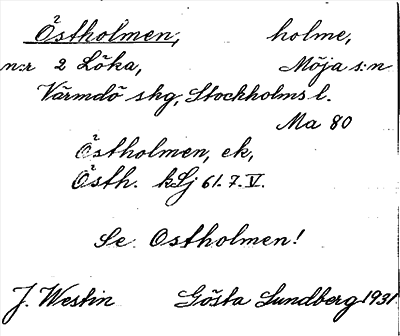 Östholmen, holme,
n:r 2 Löka, Möja s:n
Värmdö skg, Stockholms l.
Ma 80
Östholmen, ek,
Östh. kSj 61.7.V.
Se Ostholmen!
J. Westin Gösta Lundberg 1931